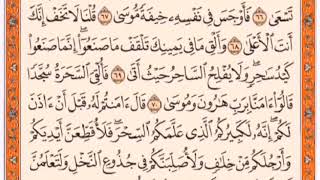 تَسْعَىٰ ﴿٦٦﴾ فَأَوْجَسَ فِى نَفْسِهِۦ خِيفَةً مُّوسَىٰ ﴿٦٧﴾ قُلْنَا لَا تَخَفْ إِنَّكَ
أَنتَ ٱلْأَعْلَىٰ ﴿٦٨﴾ وَأَلْقِ مَا فِى يَمِينِكَ تَلْقَفْ مَا صَنَعُوٓا۟ ۖ إِنَّمَا صَنَعُوا۟
كَيْدُ سَـٰحِرٍ ۖ وَلَا يُفْلِحُ ٱلسَّاحِرُ حَيْثُ أَتَىٰ ﴿٦٩﴾ فَأُلْقِىَ ٱلسَّحَرَةُ سُجَّدًا
قَالُوٓا۟ ءَامَنَّا بِرَبِّ هَـٰرُونَ وَمُوسَىٰ ﴿٧٠﴾ قَالَ ءَامَنتُمْ لَهُۥ قَبْلَ أَنْ ءَاذَنَ
لَكُمْ ۖ إِنَّهُۥ لَكَبِيرُكُمُ ٱلَّذِى عَلَّمَكُمُ ٱلسِّحْرَ ۖ فَلَأُقَطِّعَنَّ أَيْدِيَكُمْ
وَأَرْجُلَكُم مِّنْ خِلَـٰفٍ وَلَأُصَلِّبَنَّكُمْ فِى جُذُوعِ ٱلنَّخْلِ وَلَتَعْلَمُنَّ